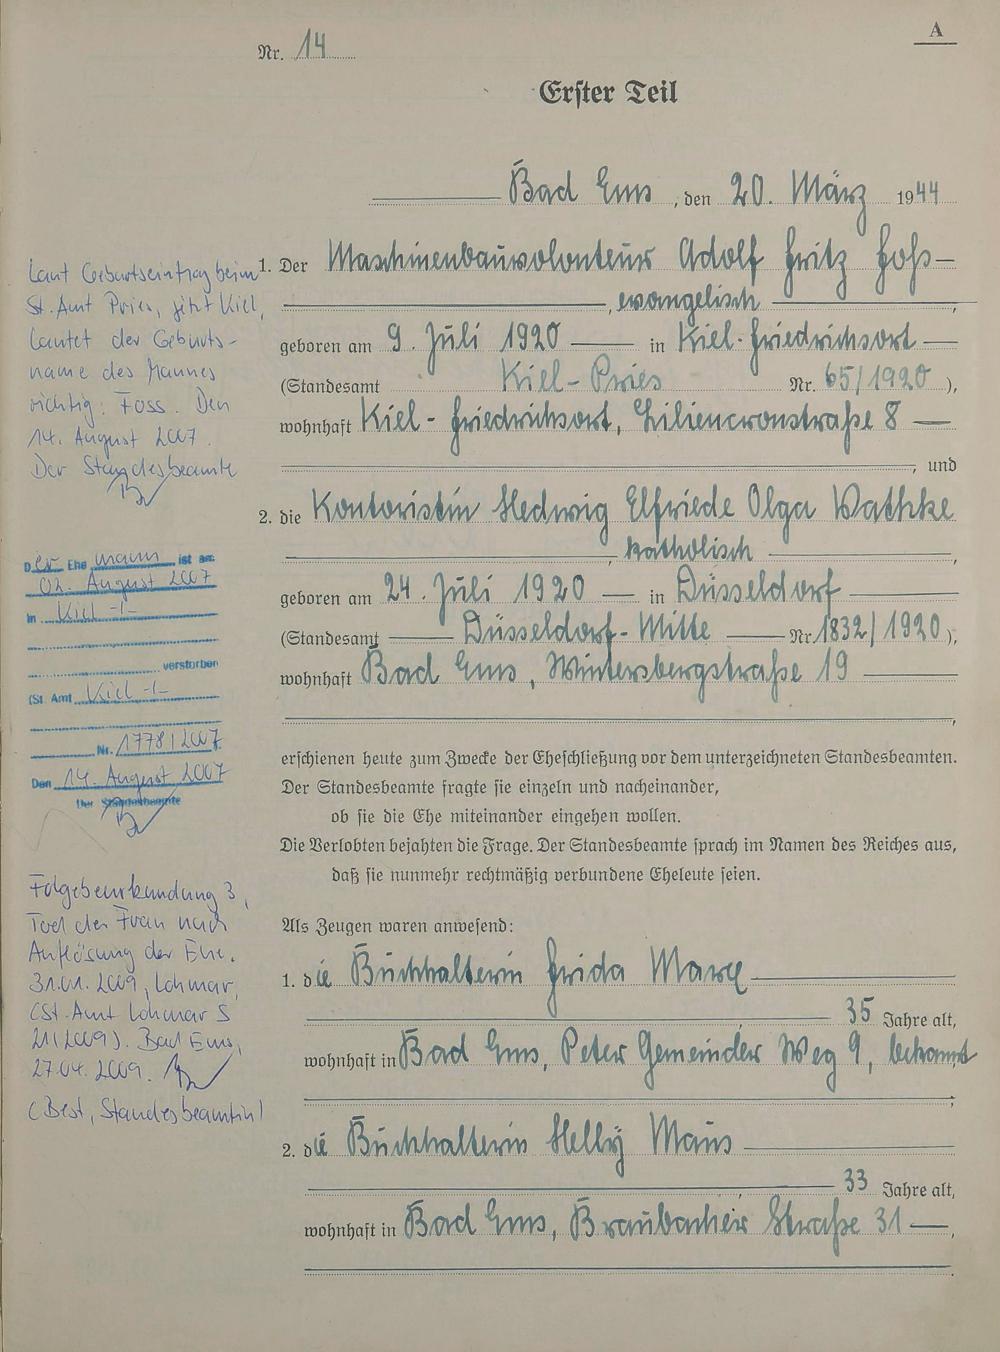 A
Nr. 14
Erster Teil
Bad Ems, den 20. März 1944
1. Der Maschinenbauvolonteur Adolf Fritz Foß
, evangelisch
geboren am 9. Juli 1920 in Kiel-Friedrichsort
(Standesamt Kiel-Pries Nr. 65/1920),
wohnhaft Kiel-Friedrichsort, Liliencronstraße 8
, und
2. die Kontoristin Hedwig Elfriede Olga Wathke
, katholisch ,
geboren am 24. Juli 1920 in Düsseldorf
(Standesamt Düsseldorf-Mitte Nr. 1832/1920),
wohnhaft Bad Ems, Wintersbergstraße 19
,
erschienen heute zum Zwecke der Eheschließung vor dem unterzeichneten Standesbeamten.
Der Standesbeamte fragte sie einzeln und nacheinander,
ob sie die Ehe miteinander eingehen wollen.
Die Verlobten bejahten die Frage. Der Standesbeamte sprach im Namen des Reiches aus,
daß sie nunmehr rechtmäßig verbundene Eheleute seien.
Als Zeugen waren anwesend:
1. die Buchhalterin Frida Marx
35 Jahre alt,
wohnhaft in Bad Ems, Peter Gemeinder Weg 9, bekannt
;
2. die Buchhalterin Helly Maus
33 Jahre alt,
wohnhaft in Bad Ems, Braubacher Straße 31 ,
.
Laut Geburtseintrag beim
St. Amt Pries, jetzt Kiel,
lautet der Geburts-
name des Mannes
richtig: Foss. Den
14. August 2007.
Der Standesbeamte
Der Ehemann ist am
02. August 2007
in Kiel -/-
verstorben
(St. Amt Kiel -/-
Nr. 1778/2007
Den 14. August 2007
Der Standesbeamte
Folgebeurkundung 3,
Tod der Frau nach
Auflösung der Ehe.
31.01.2009, Lohmar,
(St. Amt Lohmar S
21/2009). Bad Ems,
27.04.2009.
(Best, Standesbeamtin)